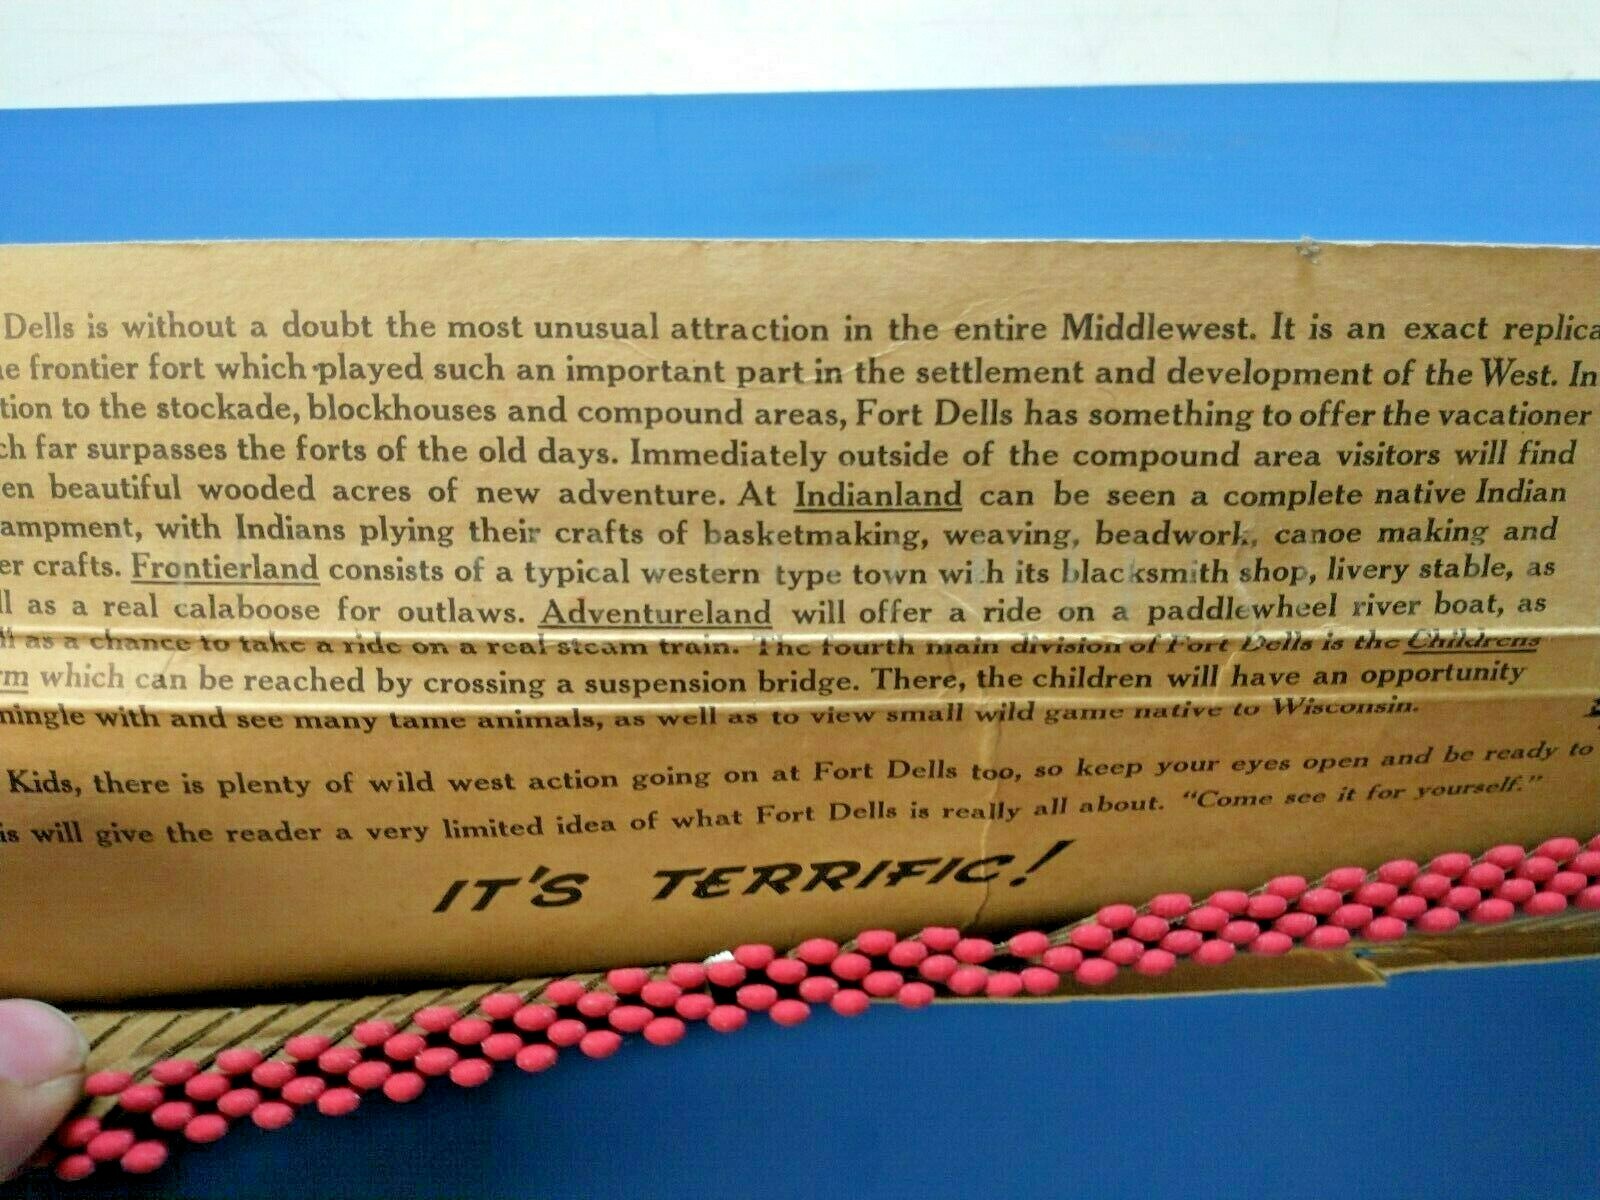 Dells is without a doubt the most unusual attraction in the entire Middlewest. It is an exact replica
e frontier fort which played such an important part in the settlement and development of the West. In
tion to the stockade, blockhouses and compound areas, Fort Dells has something to offer the vacationer
ch far surpasses the forts of the old days. Immediately outside of the compound area visitors will find
en beautiful wooded acres of new adventure. At Indianland can be seen a complete native Indian
ampment, with Indians plying their crafts of basketmaking, weaving, beadwork, canoe making and
er crafts. Frontierland consists of a typical western type town with its blacksmith shop, livery stable, as
ll as a real calaboose for outlaws. Adventureland will offer a ride on a paddlewheel river boat, as
ll as a chance to take a ride on a real steam train. The fourth main division of Fort Dells is the Childrens
rm which can be reached by crossing a suspension bridge. There, the children will have an opportunity
mingle with and see many tame animals, as well as to view small wild game native to Wisconsin.
Kids, there is plenty of wild west action going on at Fort Dells too, so keep your eyes open and be ready to
is will give the reader a very limited idea of what Fort Dells is really all about. "Come see it for yourself."
IT'S TERRIFIC!